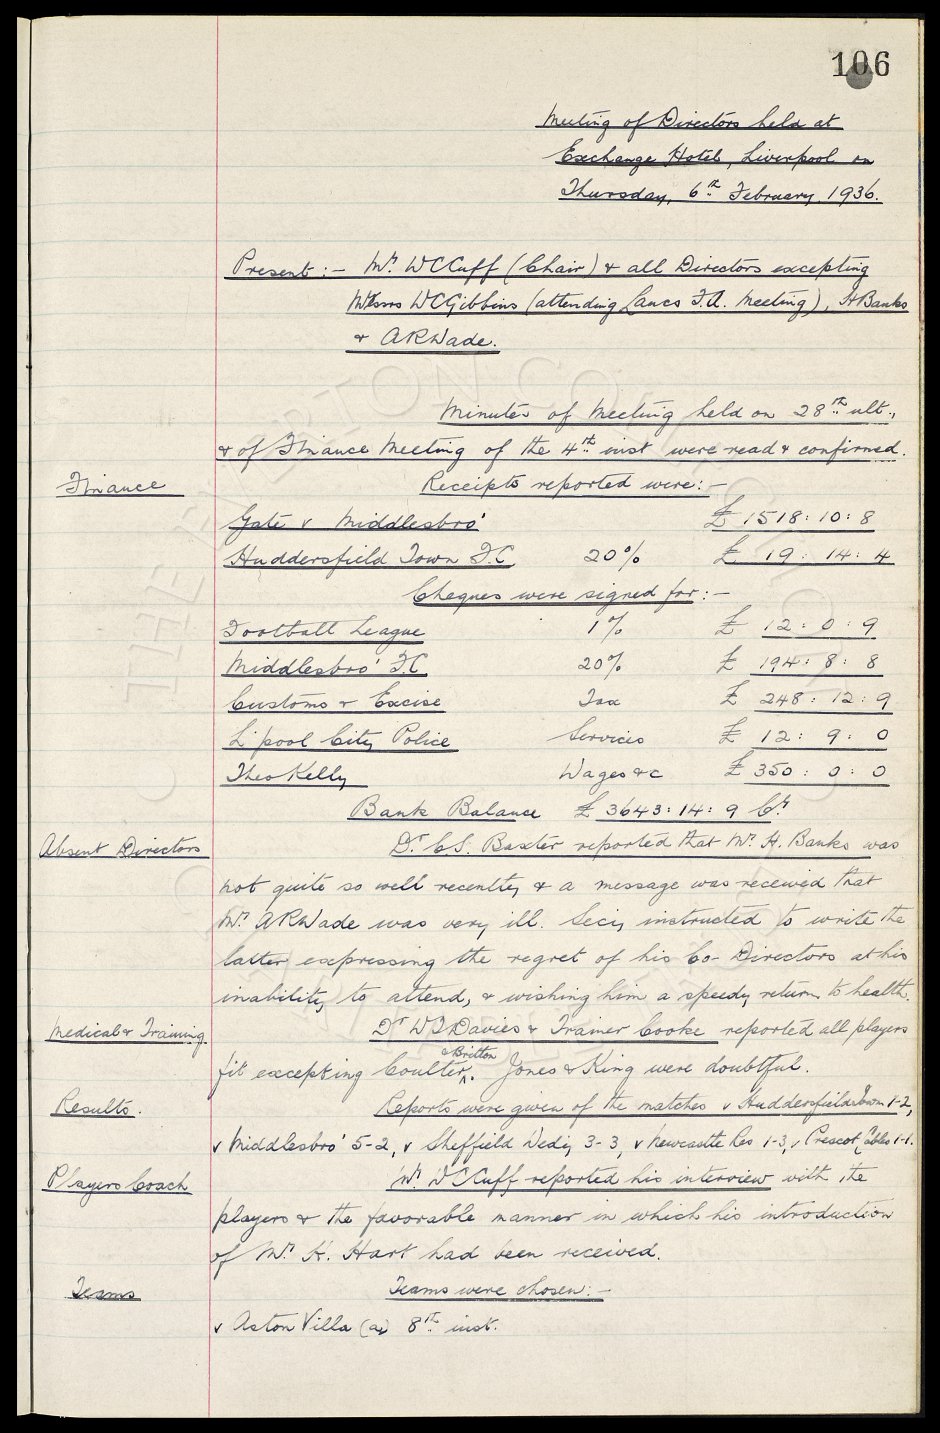 106
Meeting of Directors held at
Exchange Hotel, Liverpool on
Thursday, 6th February, 1936.
Present:- Mr. W C Cuff (Chair) & all Directors excepting
Messrs W C Gibbins (attending Lancs F.A. Meeting), H Banks
& A R Wade.
Minutes of Meeting held on 28th ult.,
& of Finance Meeting of the 4th inst were read & confirmed.
Finance Receipts reported were:-
Gate v Middlesbro' £1518:10:8
Huddersfield Town F.C. 20% £ 19:14:4
Cheques were signed for:-
Football League 1% £ 12:0:9
Middlesbro' F.C 20% £ 194:8:8
Customs & Excise Tax £ 248:12:9
L'pool City Police Services £ 12:9:0
Theo Kelly Wages &c £350:0:0
Bank Balance £3643:14:9 Cr.
Absent Directors Dr. C S. Baxter reported that Mr. H. Banks was
not quite so well recently & a message was received that
Mr. A R Wade was very ill. Secy instructed to write the
latter expressing the regret of his Co-Directors at his
inability to attend, & wishing him a speedy return to health.
Medical & Training Dr W J Davies & Trainer Cooke reported all players
fit excepting Coulter & Britton. Jones & King were doubtful.
Results. Reports were given of the matches v Huddersfield Town 1-2,
v Middlesbro' 5-2, v Sheffield Wedy 3-3, v Newcastle Res 1-3, v Prescot Cables 1-1.
Players Coach Mr. W C Cuff reported his interview with the
players & the favorable manner in which his introduction
of Mr. H. Hart had been received.
Teams Teams were chosen:-
v Aston Villa (a) 8th inst.
THE EVERTON